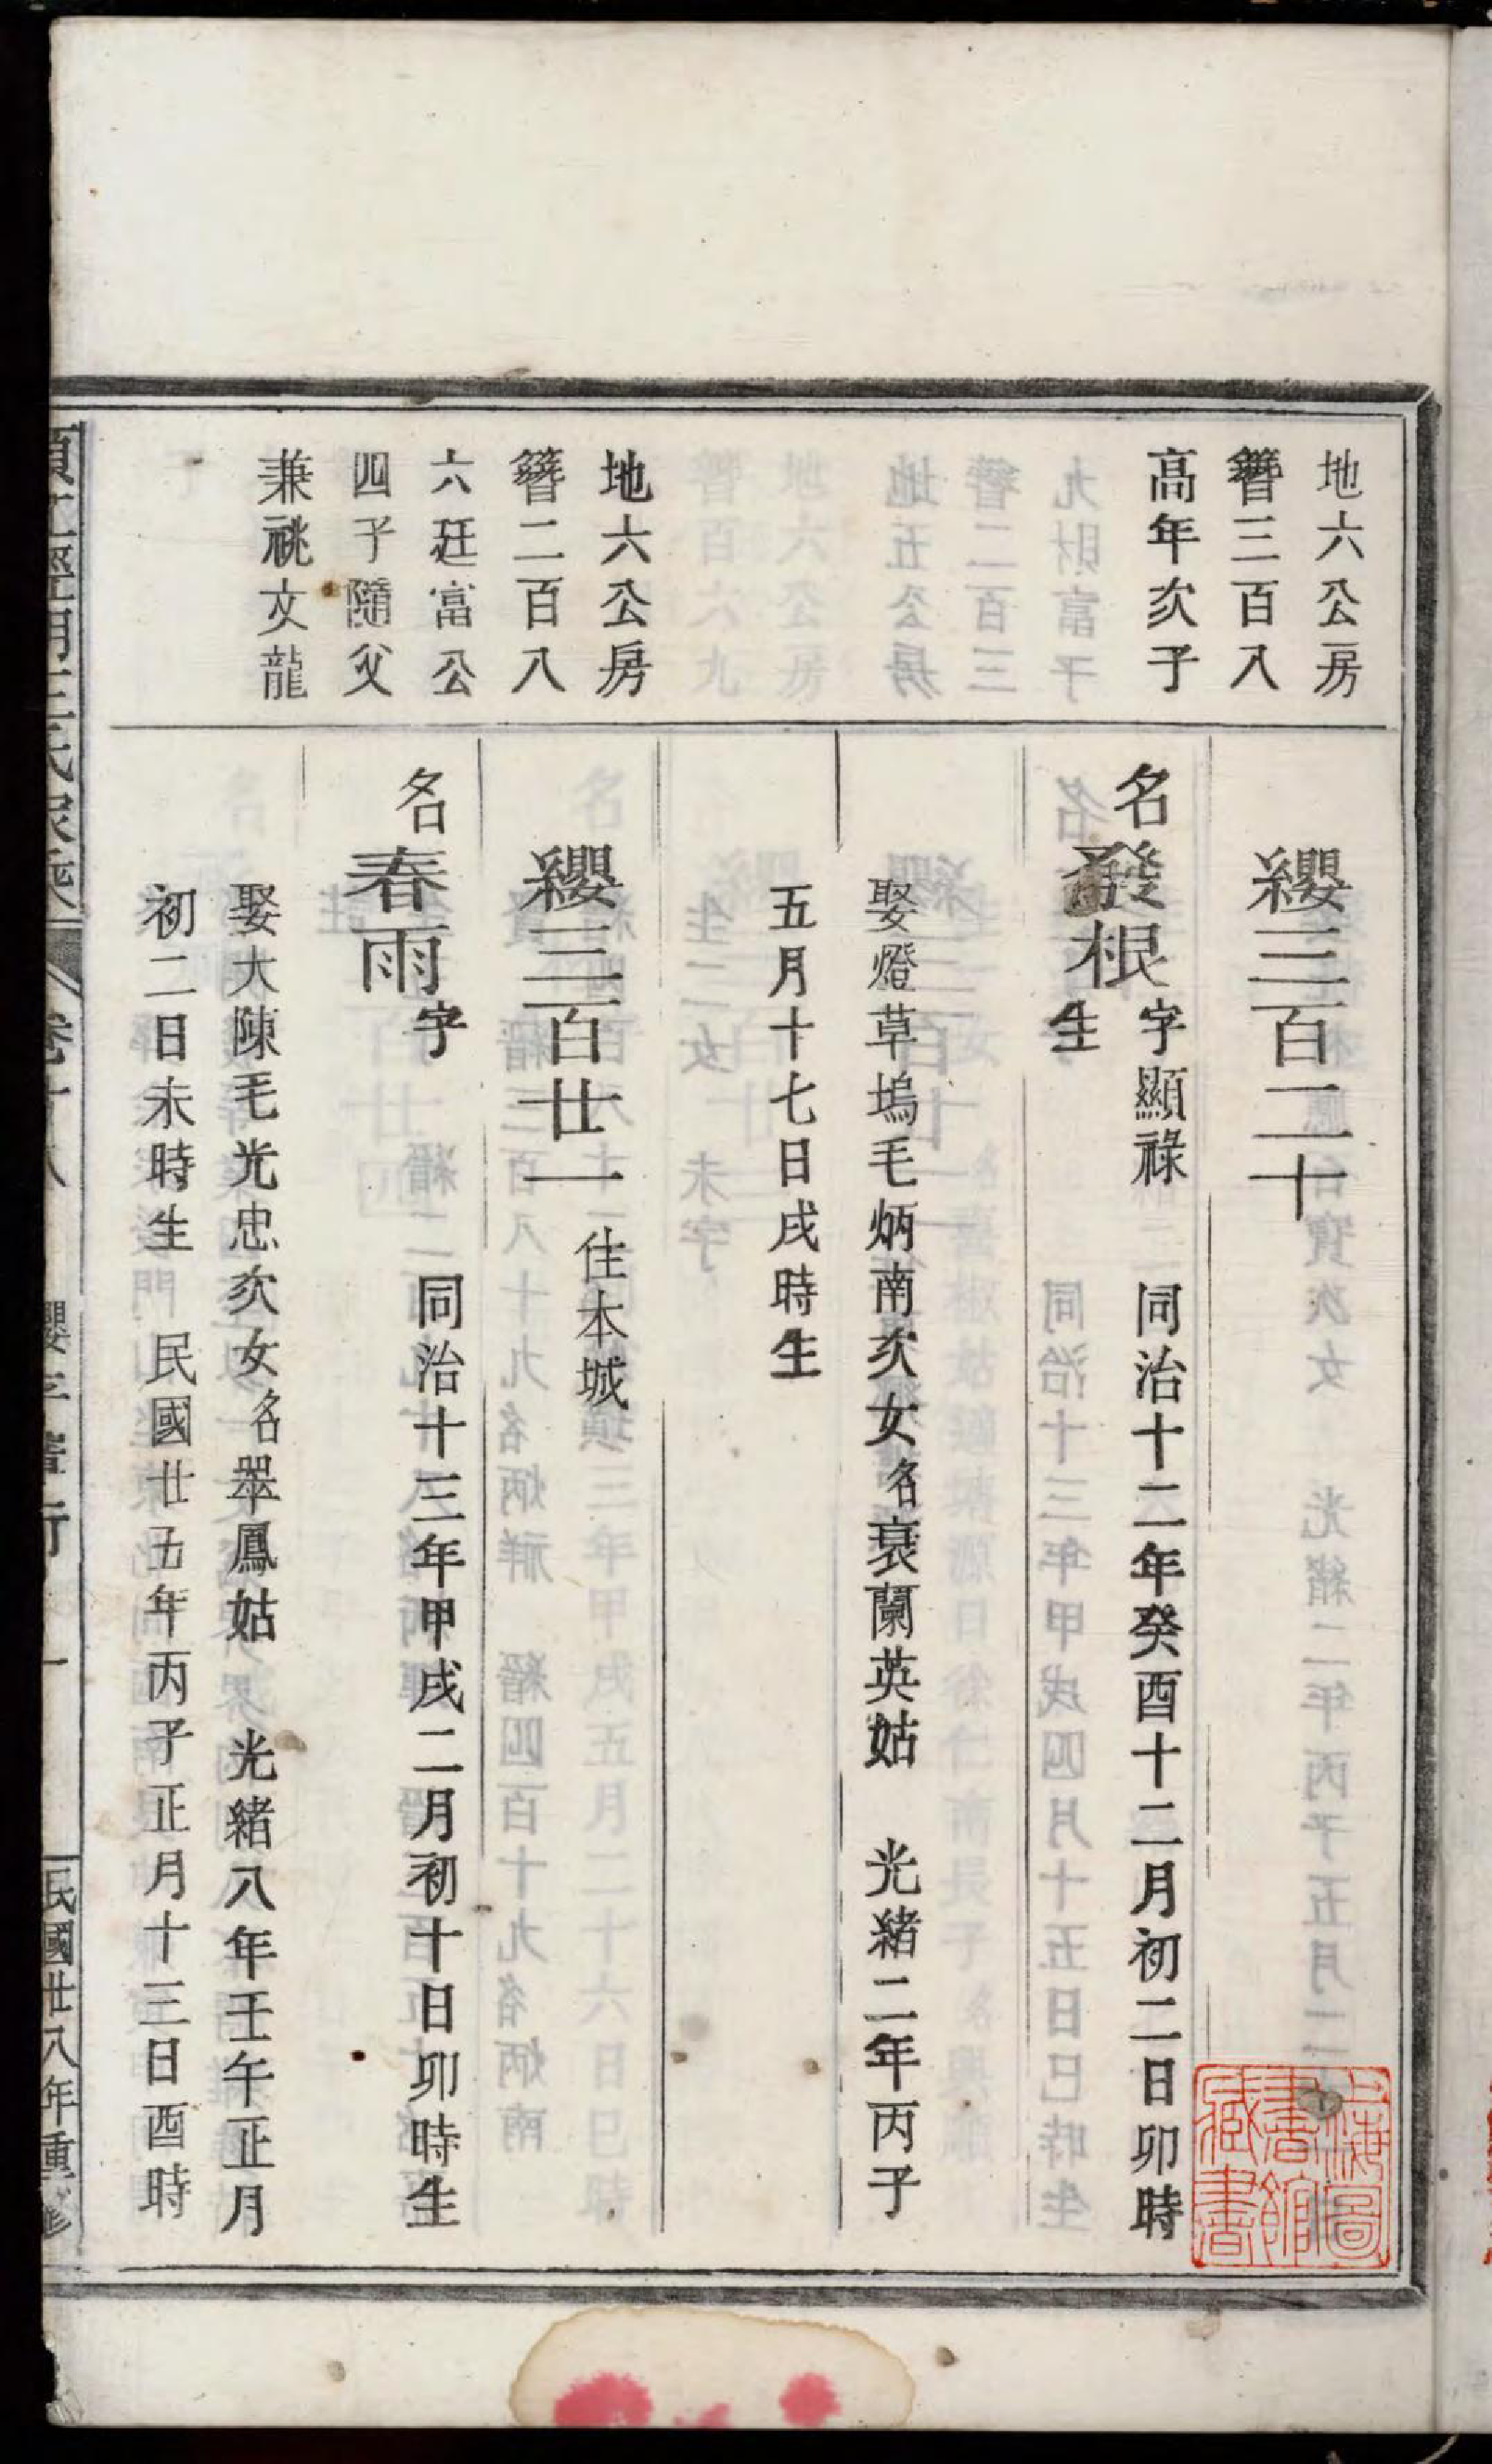 地六公房
簪三百八
高年次子
纓三百二十
名發根字顯祿 同治十二年癸酉十二月初二日卯時
生
娶燈草塢毛炳南次女名裒蘭英姑 光緒二年丙子
五月十七日戌時生
地六公房
簪二百八
六廷富公
四子隨父
兼祧文龍
纓三百廿一 住本城
名春雨字 同治十三年甲戌二月初十日卯時生
娶大陳毛光忠次女名翠鳳姑 光緒八年壬午正月
初二日未時生 民國廿五年丙子正月十三日酉時
民國廿八年重修
上海圖書館藏書